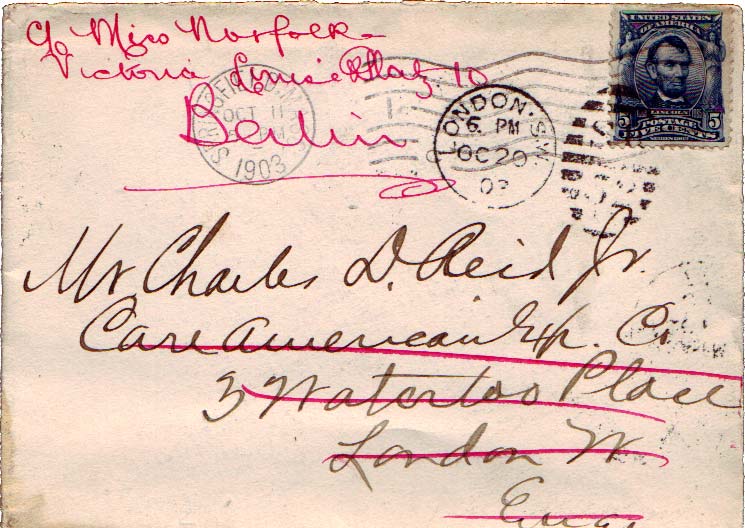 c/o Miss Norfolk-
Victoria Luise Platz 10
Berlin
OCT 11
1903
LONDON. S.W.
6. PM
OC 20
03
UNITED STATES
OF AMERICA
5 LINCOLN 5
POSTAGE
FIVE CENTS
SERIES 1902
Mr Charles D. Reid Jr.
Care American Exp. Co
3 Waterloo Place
London W.
Eng